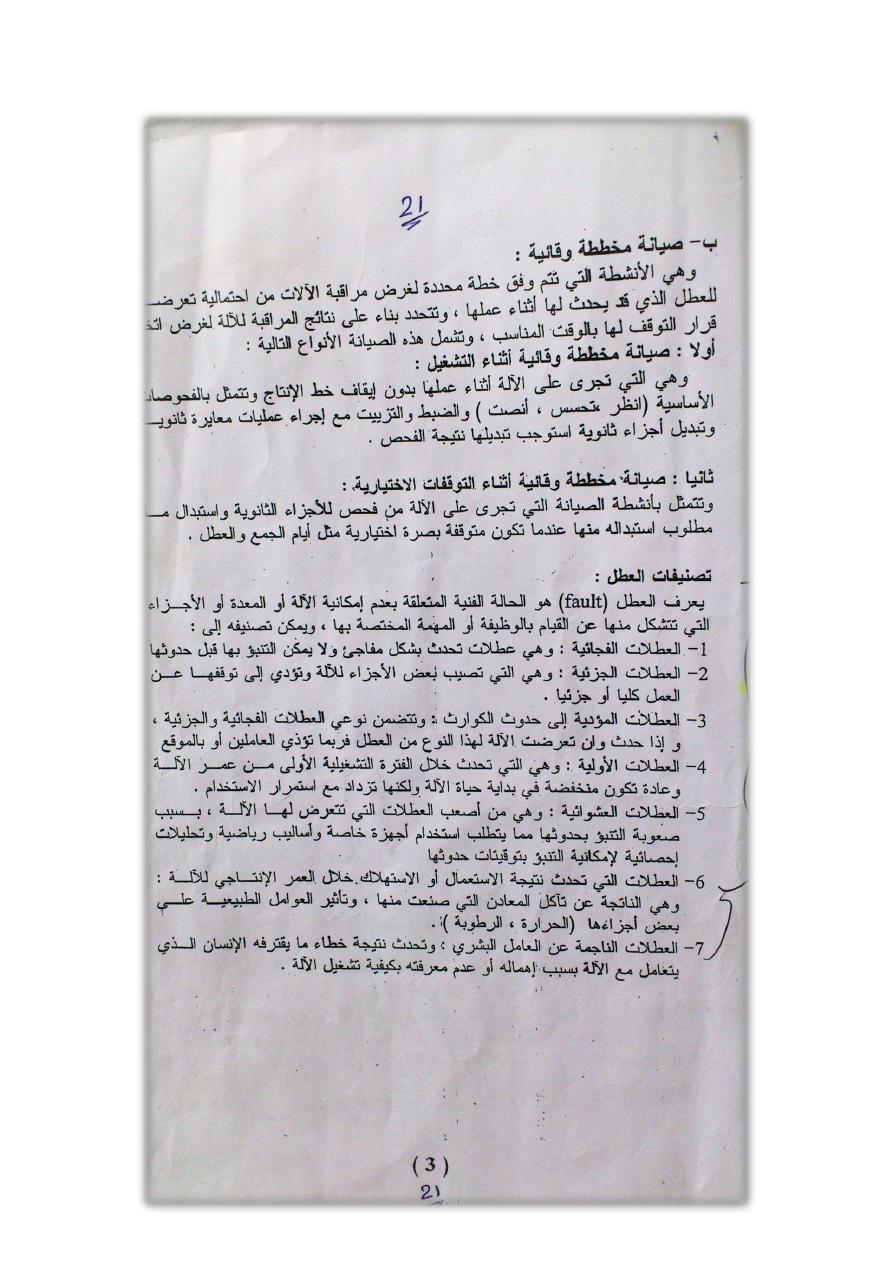 21
ب- صيانة مخططة وقائية :
وهي الأنشطة التي تتم وفق خطة محددة لغرض مراقبة الآلات من احتمالية تعرضـ
للعطل الذي قد يحدث لها أثناء عملها ، وتتحدد بناء على نتائج المراقبة للآلة لغرض اتخ
قرار التوقف لها بالوقت المناسب ، وتشمل هذه الصيانة الأنواع التالية :
أولا : صيانة مخططة وقائية أثناء التشغيل :
وهي التي تجرى على الآلة أثناء عملها بدون إيقاف خط الإنتاج وتتمثل بالفحوصا
الأساسية (انظر ،تحسس ، أنصت ) والضبط والتزييت مع إجراء عمليات معايرة ثانويـ
وتبديل أجزاء ثانوية استوجب تبديلها نتيجة الفحص .
ثانيا : صيانة مخططة وقائية أثناء التوقفات الاختيارية :
وتتمثل بأنشطة الصيانة التي تجرى على الآلة من فحص للأجزاء الثانوية واستبدال مـــ
مطلوب استبداله منها عندما تكون متوقفة بصرة اختيارية مثل أيام الجمع والعطل .
تصنيفات العطل :
يعرف العطل (fault) هو الحالة الفنية المتعلقة بعدم إمكانية الآلة أو المعدة أو الأجـــزاء
التي تتشكل منها عن القيام بالوظيفة أو المهمة المختصة بها ، ويمكن تصنيفه إلى :
1- العطلات الفجائية : وهي عطلات تحدث بشكل مفاجئ ولا يمكن التنبؤ بها قبل حدوثها
2- العطلات الجزئية : وهي التي تصيب بعض الأجزاء للآلة وتؤدي إلى توقفهـا عـن
العمل كليا أو جزئيا .
3- العطلات المؤدية إلى حدوث الكوارث : وتتضمن نوعي العطلات الفجائية والجزئية ،
و إذا حدث وان تعرضت الآلة لهذا النوع من العطل فربما تؤذي العاملين أو بالموقع
4- العطلات الأولية : وهي التي تحدث خلال الفترة التشغيلية الأولى مـن عمـر الآلـــة
وعادة تكون منخفضة في بداية حياة الآلة ولكنها تزداد مع استمرار الاستخدام .
5- العطلات العشوائية : وهي من أصعب العطلات التي تتعرض لهـا الآلـــة ، بـسبب
صعوبة التنبؤ بحدوثها مما يتطلب استخدام أجهزة خاصة وأساليب رياضية وتحليلات
إحصائية لإمكانية التنبؤ بتوقيتات حدوثها
6- العطلات التي تحدث نتيجة الاستعمال أو الاستهلاك خلال العمر الإنتـاجي للآلـــة :
وهي الناتجة عن تآكل المعادن التي صنعت منها ، وتأثير العوامل الطبيعيـــة علـــى
بعض أجزاءها (الحرارة ، الرطوبة ) .
7- العطلات الناجمة عن العامل البشري : وتحدث نتيجة خطاء ما يقترفه الإنسان الـذي
يتعامل مع الآلة بسبب إهماله أو عدم معرفته بكيفية تشغيل الآلة .
( 3 )
21